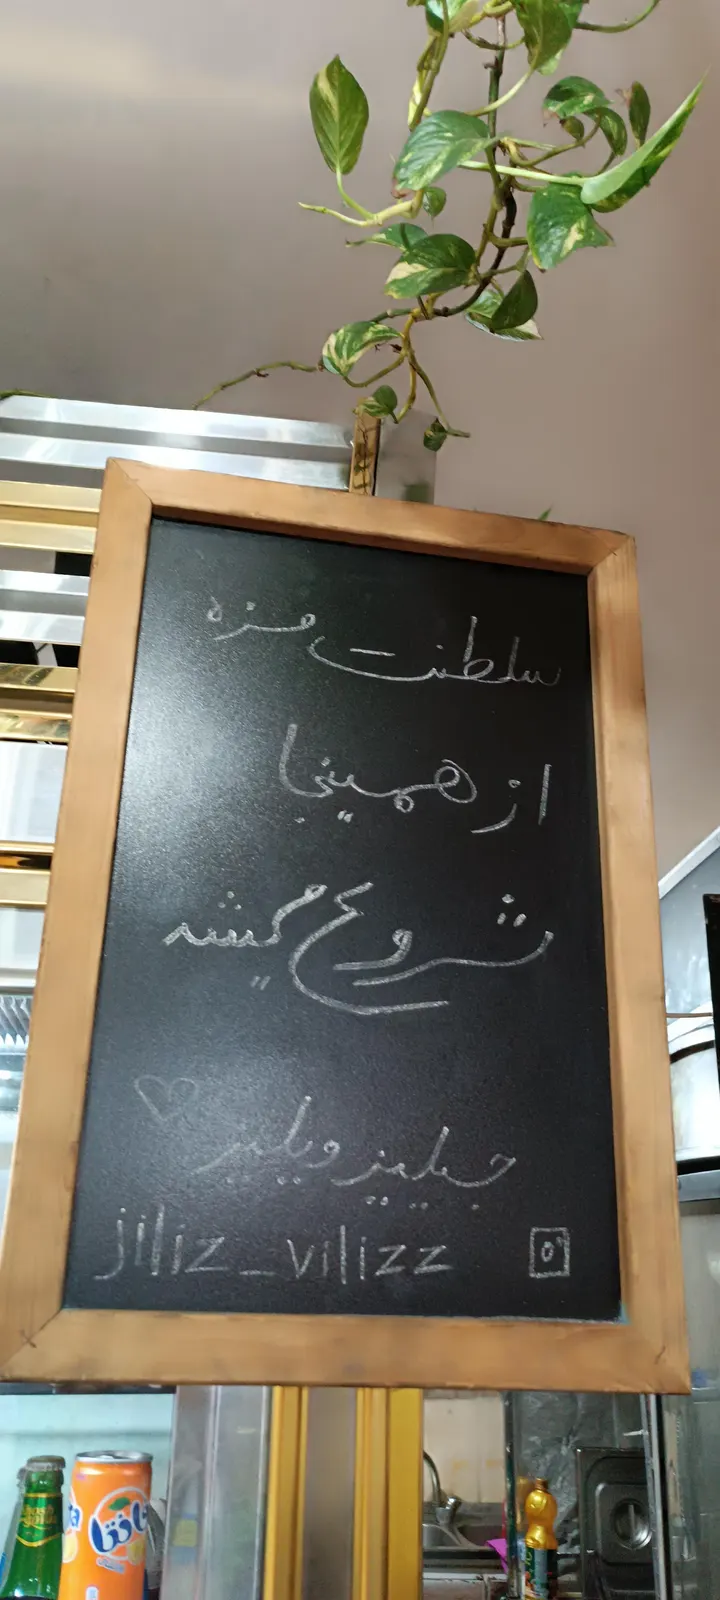 سلطنت مزه
از همینجا
شروع میشه
جیلیز ویلیز
jiliz_vilizz
فانتا